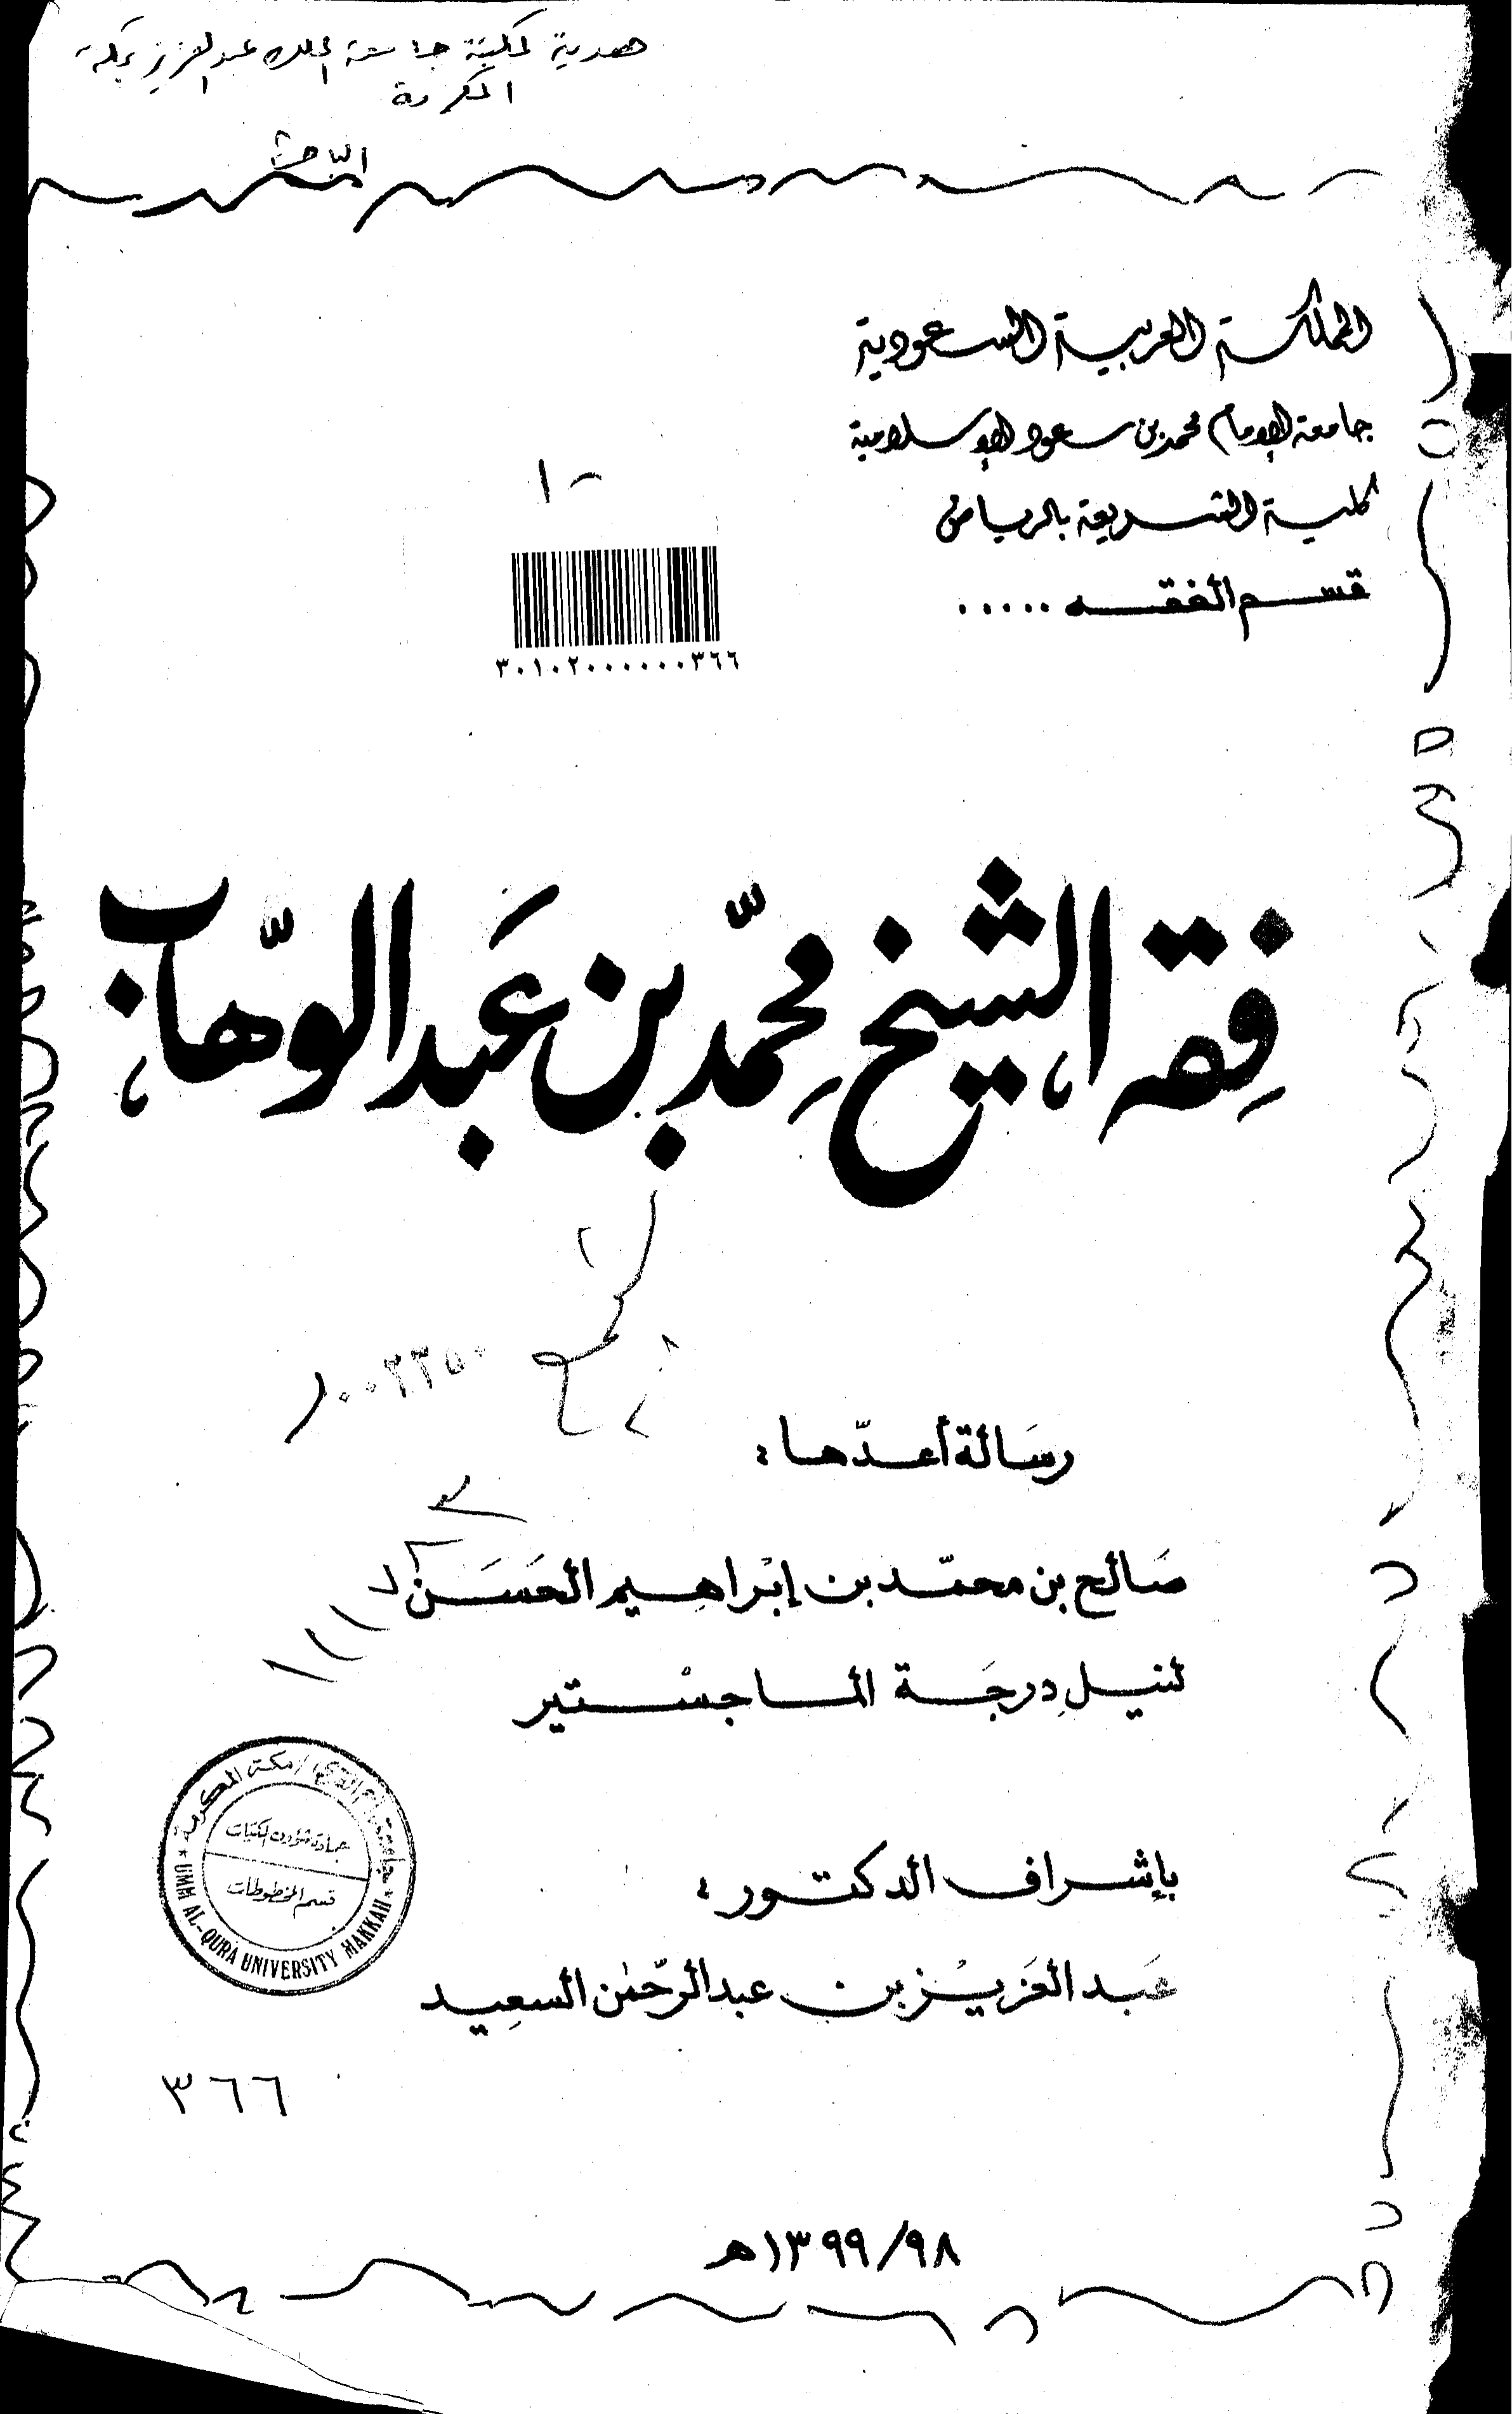 هدية لمكتبة جامعة الملك عبدالعزيز بمكة
المكرمة
الباحث
المملكة العربية السعودية
جامعة الإمام محمد بن سعود الإسلامية
كلية الشريعة بالرياض
قسم الفقه .....
٣٠١٠٢٠٠٠٠٠٠٣٦٦
فِقه الشيخ محمّد بن عَبد الوّهاب
رسَالة أعدّها:
صَالح بن محمّد بن إبْراهِيم الحَسَن
لنيل دِرجَة الماجسْتير
جامعة أم القرى / مكة المكرمة
عمادة شؤون المكتبات
قسم المخطوطات
UMM AL-QURA UNIVERSITY MAKKAH
بإشراف الدكتور:
عَبد العَزيْز بن عبدالرّحمٰن السعِيد
٣٦٦
٩٨/١٣٩٩هـ